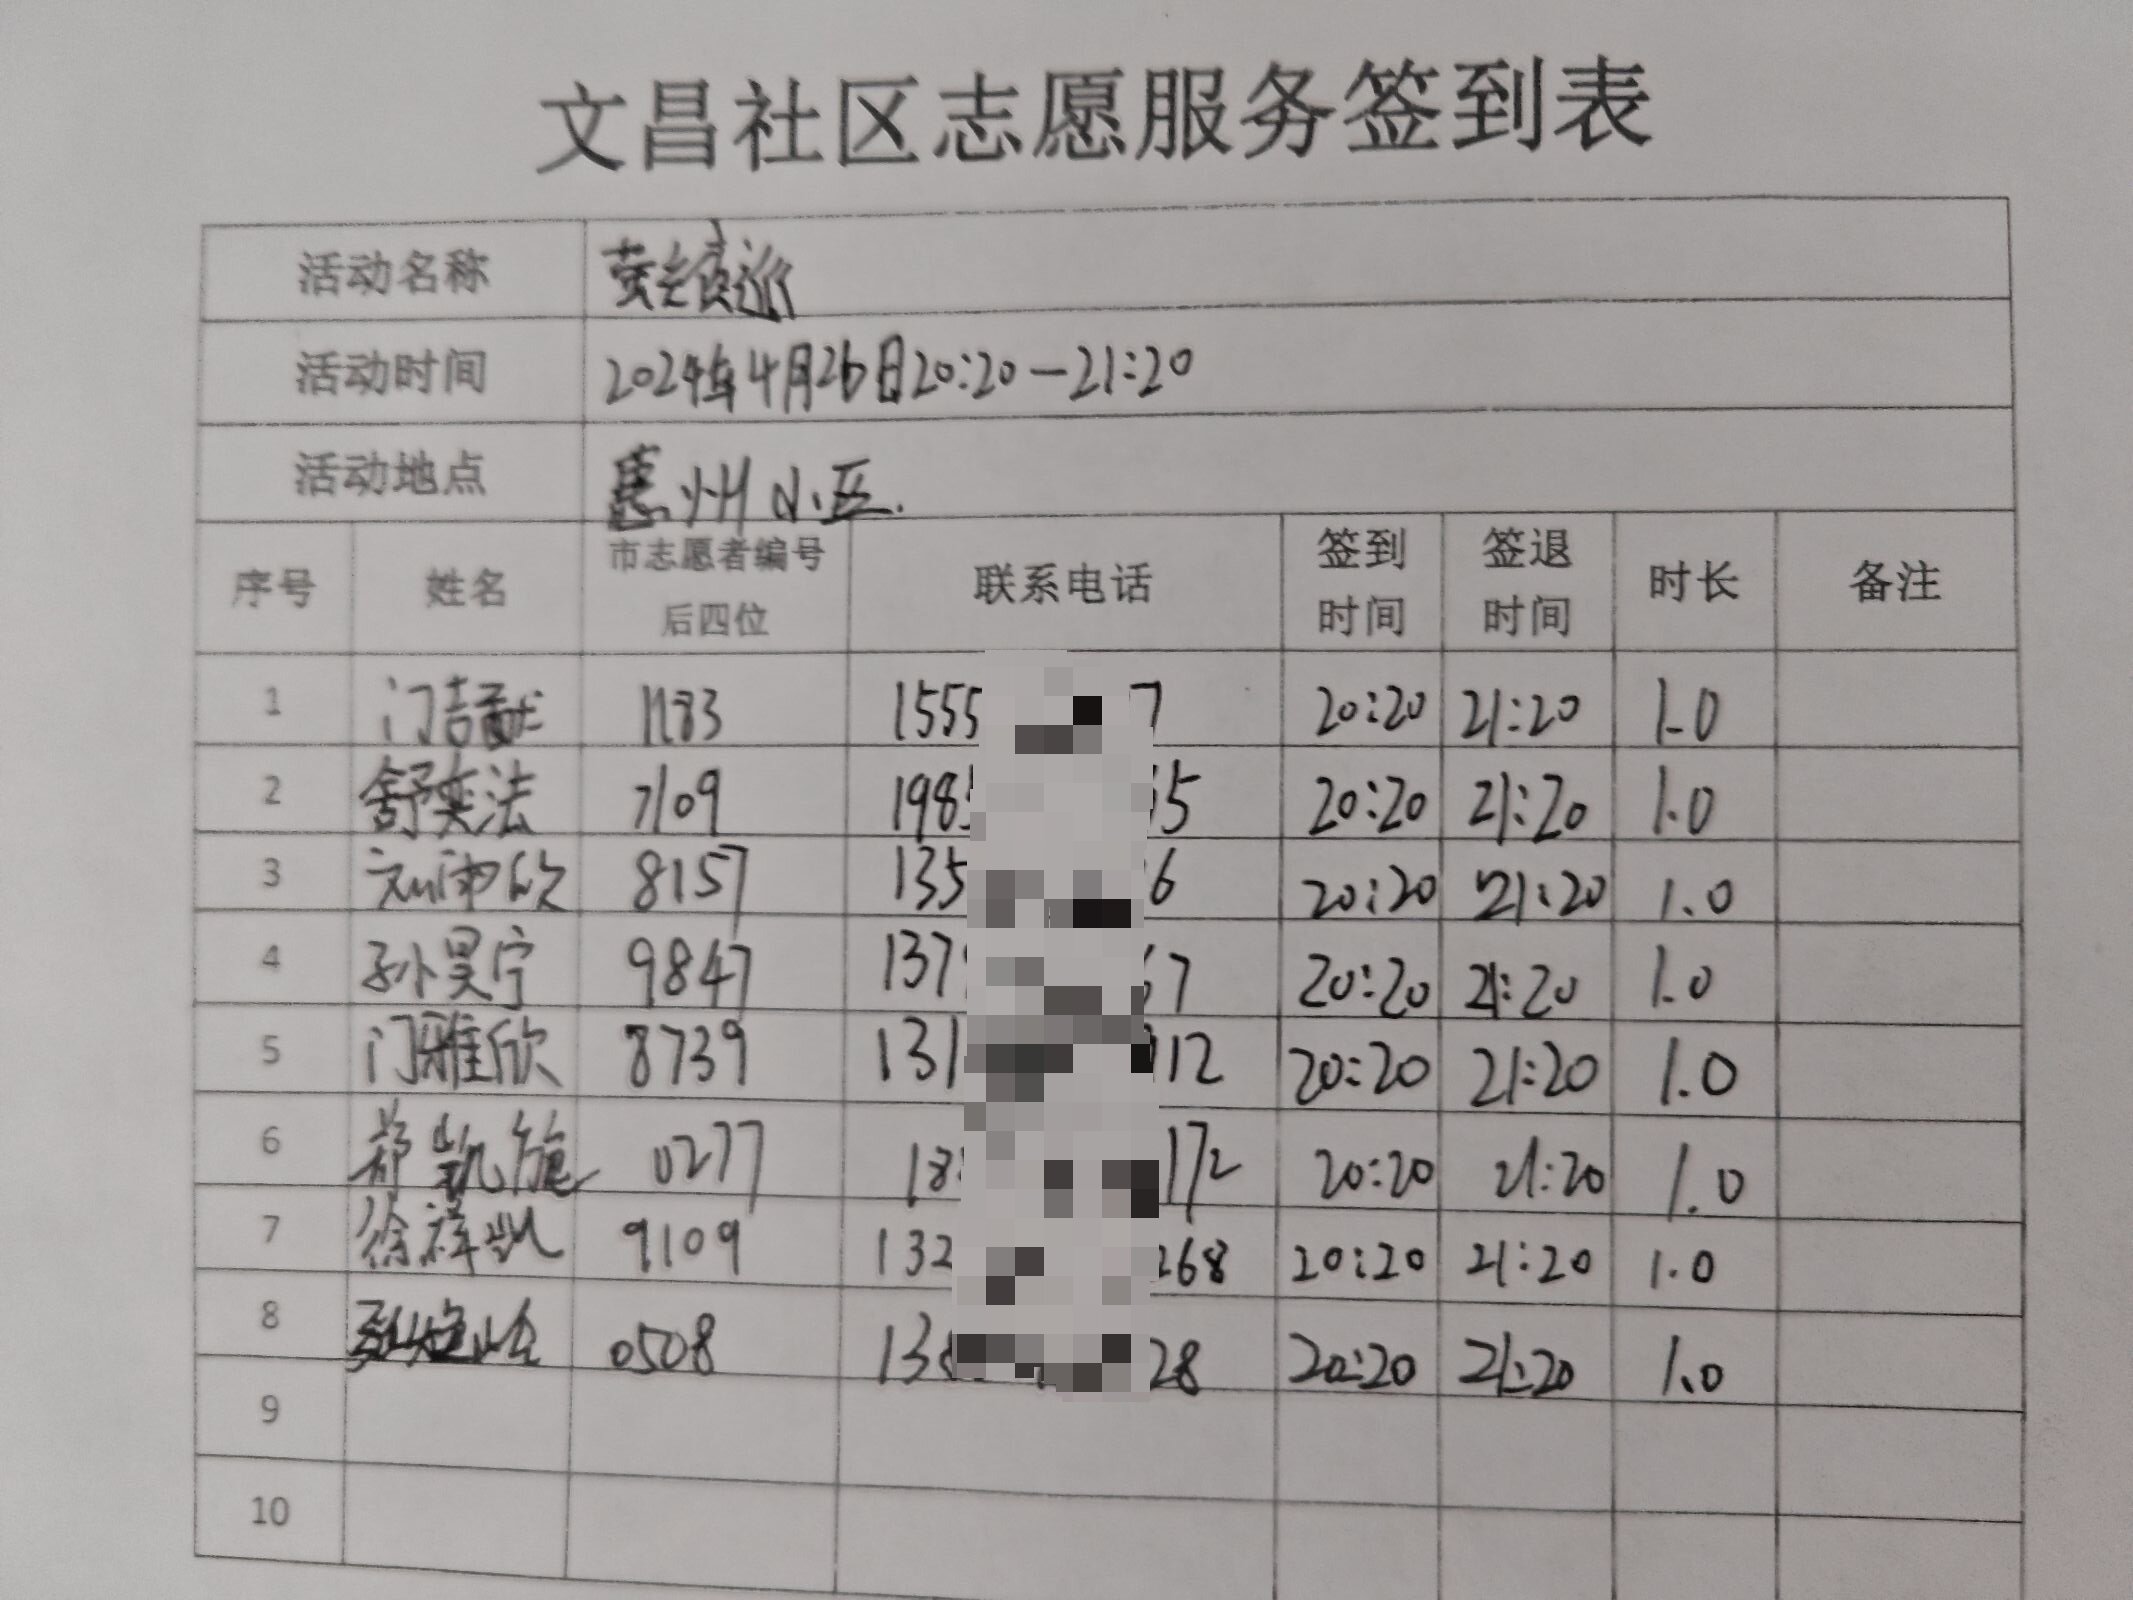 文昌社区志愿服务签到表
活动名称 荧光夜巡
活动时间 2024年4月26日20:20—21:20
活动地点 惠州小区.
序号 姓名 市志愿者编号后四位 联系电话 签到时间 签退时间 时长 备注
1 门吉 1183 1555 7 20:20 21:20 1.0
2 舒奕法 7109 198 5 20:20 21:20 1.0
3 刘沛欣 8157 135 6 20:20 21:20 1.0
4 孙昊宁 9847 137 7 20:20 21:20 1.0
5 门雅欣 8739 131 912 20:20 21:20 1.0
6 郑凯旋 0277 18 172 20:20 21:20 1.0
7 徐祥凯 9109 132 268 20:20 21:20 1.0
8 0508 13 28 20:20 21:20 1.0
9
10